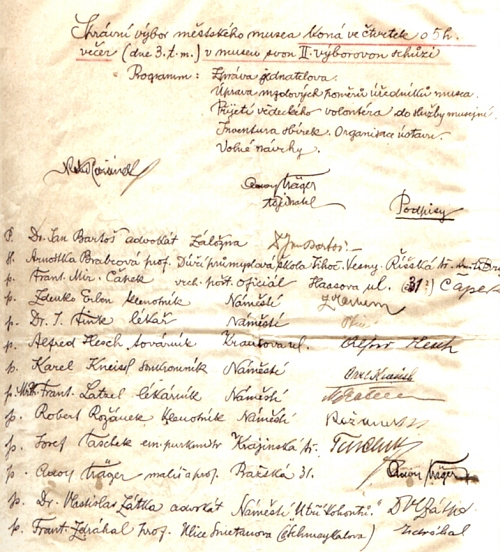 Správní výbor městského musea koná ve čtvrtek o 5 h.
večer (dne 3. t. m.) v museu svou II. výborovou schůzi
Programm: Zpráva jednatelova.
Úprava mzdových poměrů úředníků musea.
Přijetí vědeckého volontéra do služby musejní.
Inventura sbírek. Organisace ústavu.
Volné návrhy.
Adolf Träger
jednatel
Podpisy
P. Dr. Jan Bartoš advokát Záložna Dr Jan Bartoš
Arnoštka Brabcová prof. Dívčí průmyslová škola Vesny
p. Frant. Mir. Čapek vrch. pošt. oficiál Haasova ul. (31) Čapek
p. Zdenko klenotník Náměstí
p. Dr. J. Fink lékař Náměstí
p. Alfred Hesch továrník ul. Alfred Hesch
p. Karel Kneissl soukromník Náměstí
p. Mr. Frant. Látzel lékárník Náměstí
p. Robert Rožánek klenotník Náměstí Rožánek
p. Josef Taschek em. purkmistr Krajinská tř. Taschek
p. Adolf Träger malíř a prof. 31. Adolf Träger
p. Dr. Vlastislav Zátka advokát Náměstí „U tří kohoutů." Dr Zátka
p. Frant. Zdráhal prof. Ulice Smetanova Zdráhal